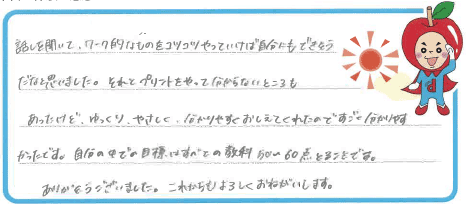 話しを聞いて、ワーク的なものをコツコツやっていけば自分にもできそう
だなと思いました。それとプリントをやって分からないところも
あったけど、ゆっくり、やさしく、分かりやすくおしえてくれたのですごく分かりやす
かったです。自分の中での目標はすべての教科 60点とることです。
ありがとうございました。これからもよろしくおねがいします。